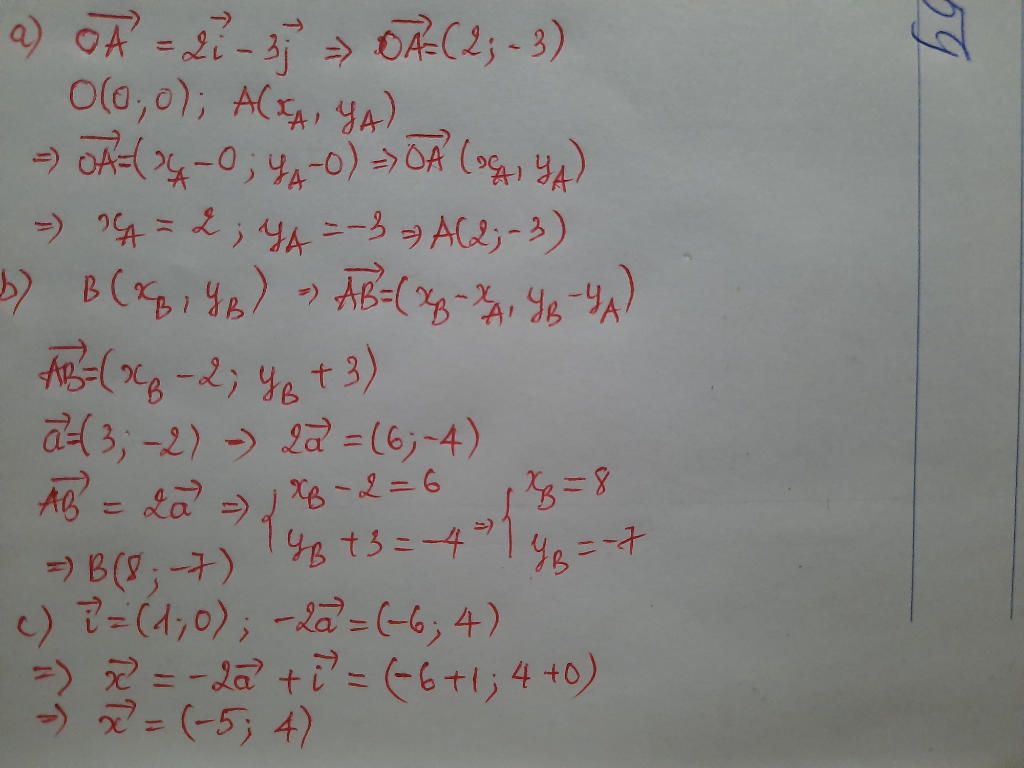 a) $\overrightarrow{OA} = 2\vec{i} - 3\vec{j} \Rightarrow \overrightarrow{OA} = (2; -3)$
$O(0; 0); A(x_A, y_A)$
$\Rightarrow \overrightarrow{OA} = (x_A - 0; y_A - 0) \Rightarrow \overrightarrow{OA}(x_A, y_A)$
$\Rightarrow x_A = 2; y_A = -3 \Rightarrow A(2; -3)$
b) $B(x_B, y_B) \Rightarrow \overrightarrow{AB} = (x_B - x_A, y_B - y_A)$
$\overrightarrow{AB} = (x_B - 2; y_B + 3)$
$\vec{a} = (3; -2) \Rightarrow 2\vec{a} = (6; -4)$
$\overrightarrow{AB} = 2\vec{a} \Rightarrow \begin{cases} x_B - 2 = 6 \\ y_B + 3 = -4 \end{cases} \Rightarrow \begin{cases} x_B = 8 \\ y_B = -7 \end{cases}$
$\Rightarrow B(8; -7)$
c) $\vec{i} = (1; 0); -2\vec{a} = (-6; 4)$
$\Rightarrow \vec{x} = -2\vec{a} + \vec{i} = (-6 + 1; 4 + 0)$
$\Rightarrow \vec{x} = (-5; 4)$